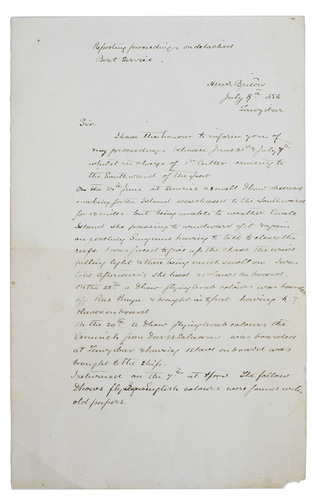 Reporting proceedings on detached
Boat Service.
H.M.S. Briton
July 8th 1884
Sir
I have the honour to inform you of
my proceedings between June 21st & July 7th
whilst in charge of 1st Cutter cruising to
the Southward of the port
On the 24th June at Sunrise a small Dhow observed
making for the Island was chased to the Southward
for miles but being unable to weather
Island she passing to windward of it again
on reaching having to tack to clear the
reefs I was forced to give up the chase the wind
falling light & there being much swell on. I was
told afterwards she had slaves on board
On the 28th a Dhow flying Arab colours was boarded
off Ras & brought in to port having 7
slaves on board
On the 30th a Dhow flying Arab colours the
from Dar es Salaam was boarded
at & having slaves on board was
brought to the Ship.
I returned on the 7th at The follow
Dhows flying English colours were found with
old papers.